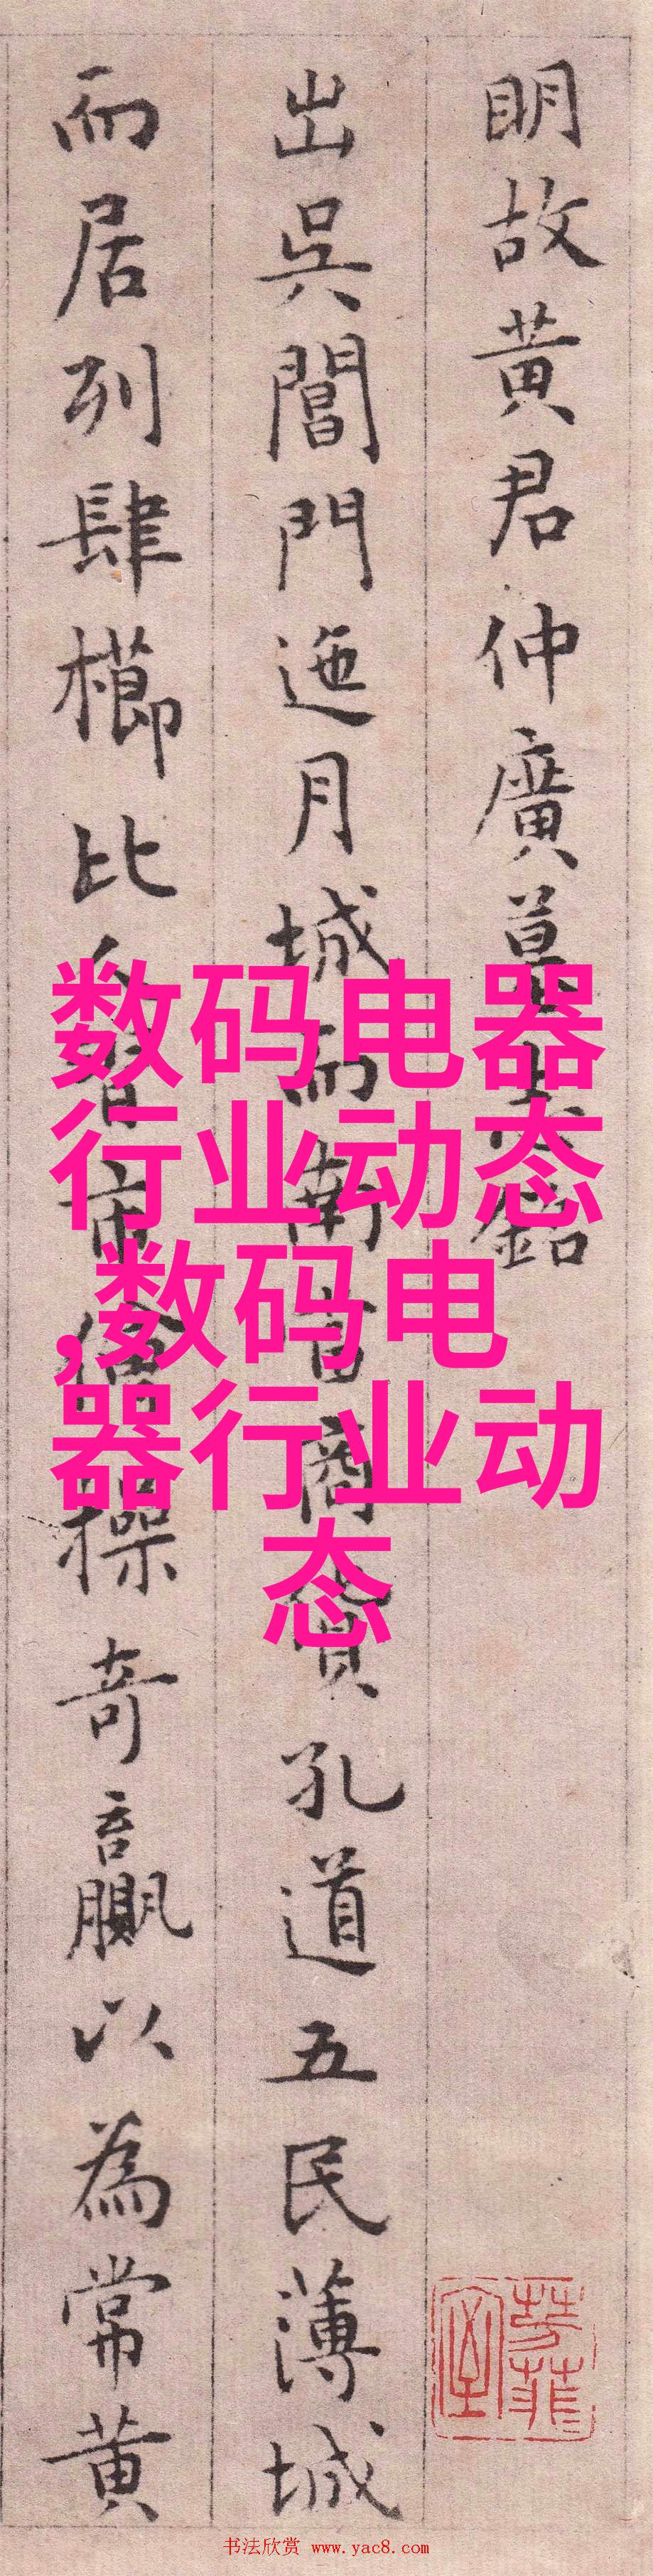 明故黄君仲廣墓誌銘
出吳閶門迤月城而南皆商賈孔道五民薄城
而居列肆櫛比人皆市儈操奇贏以為常黄
数码电器
行业动态
,数码电
器行业动
态
书法欣赏 www.yac8.com